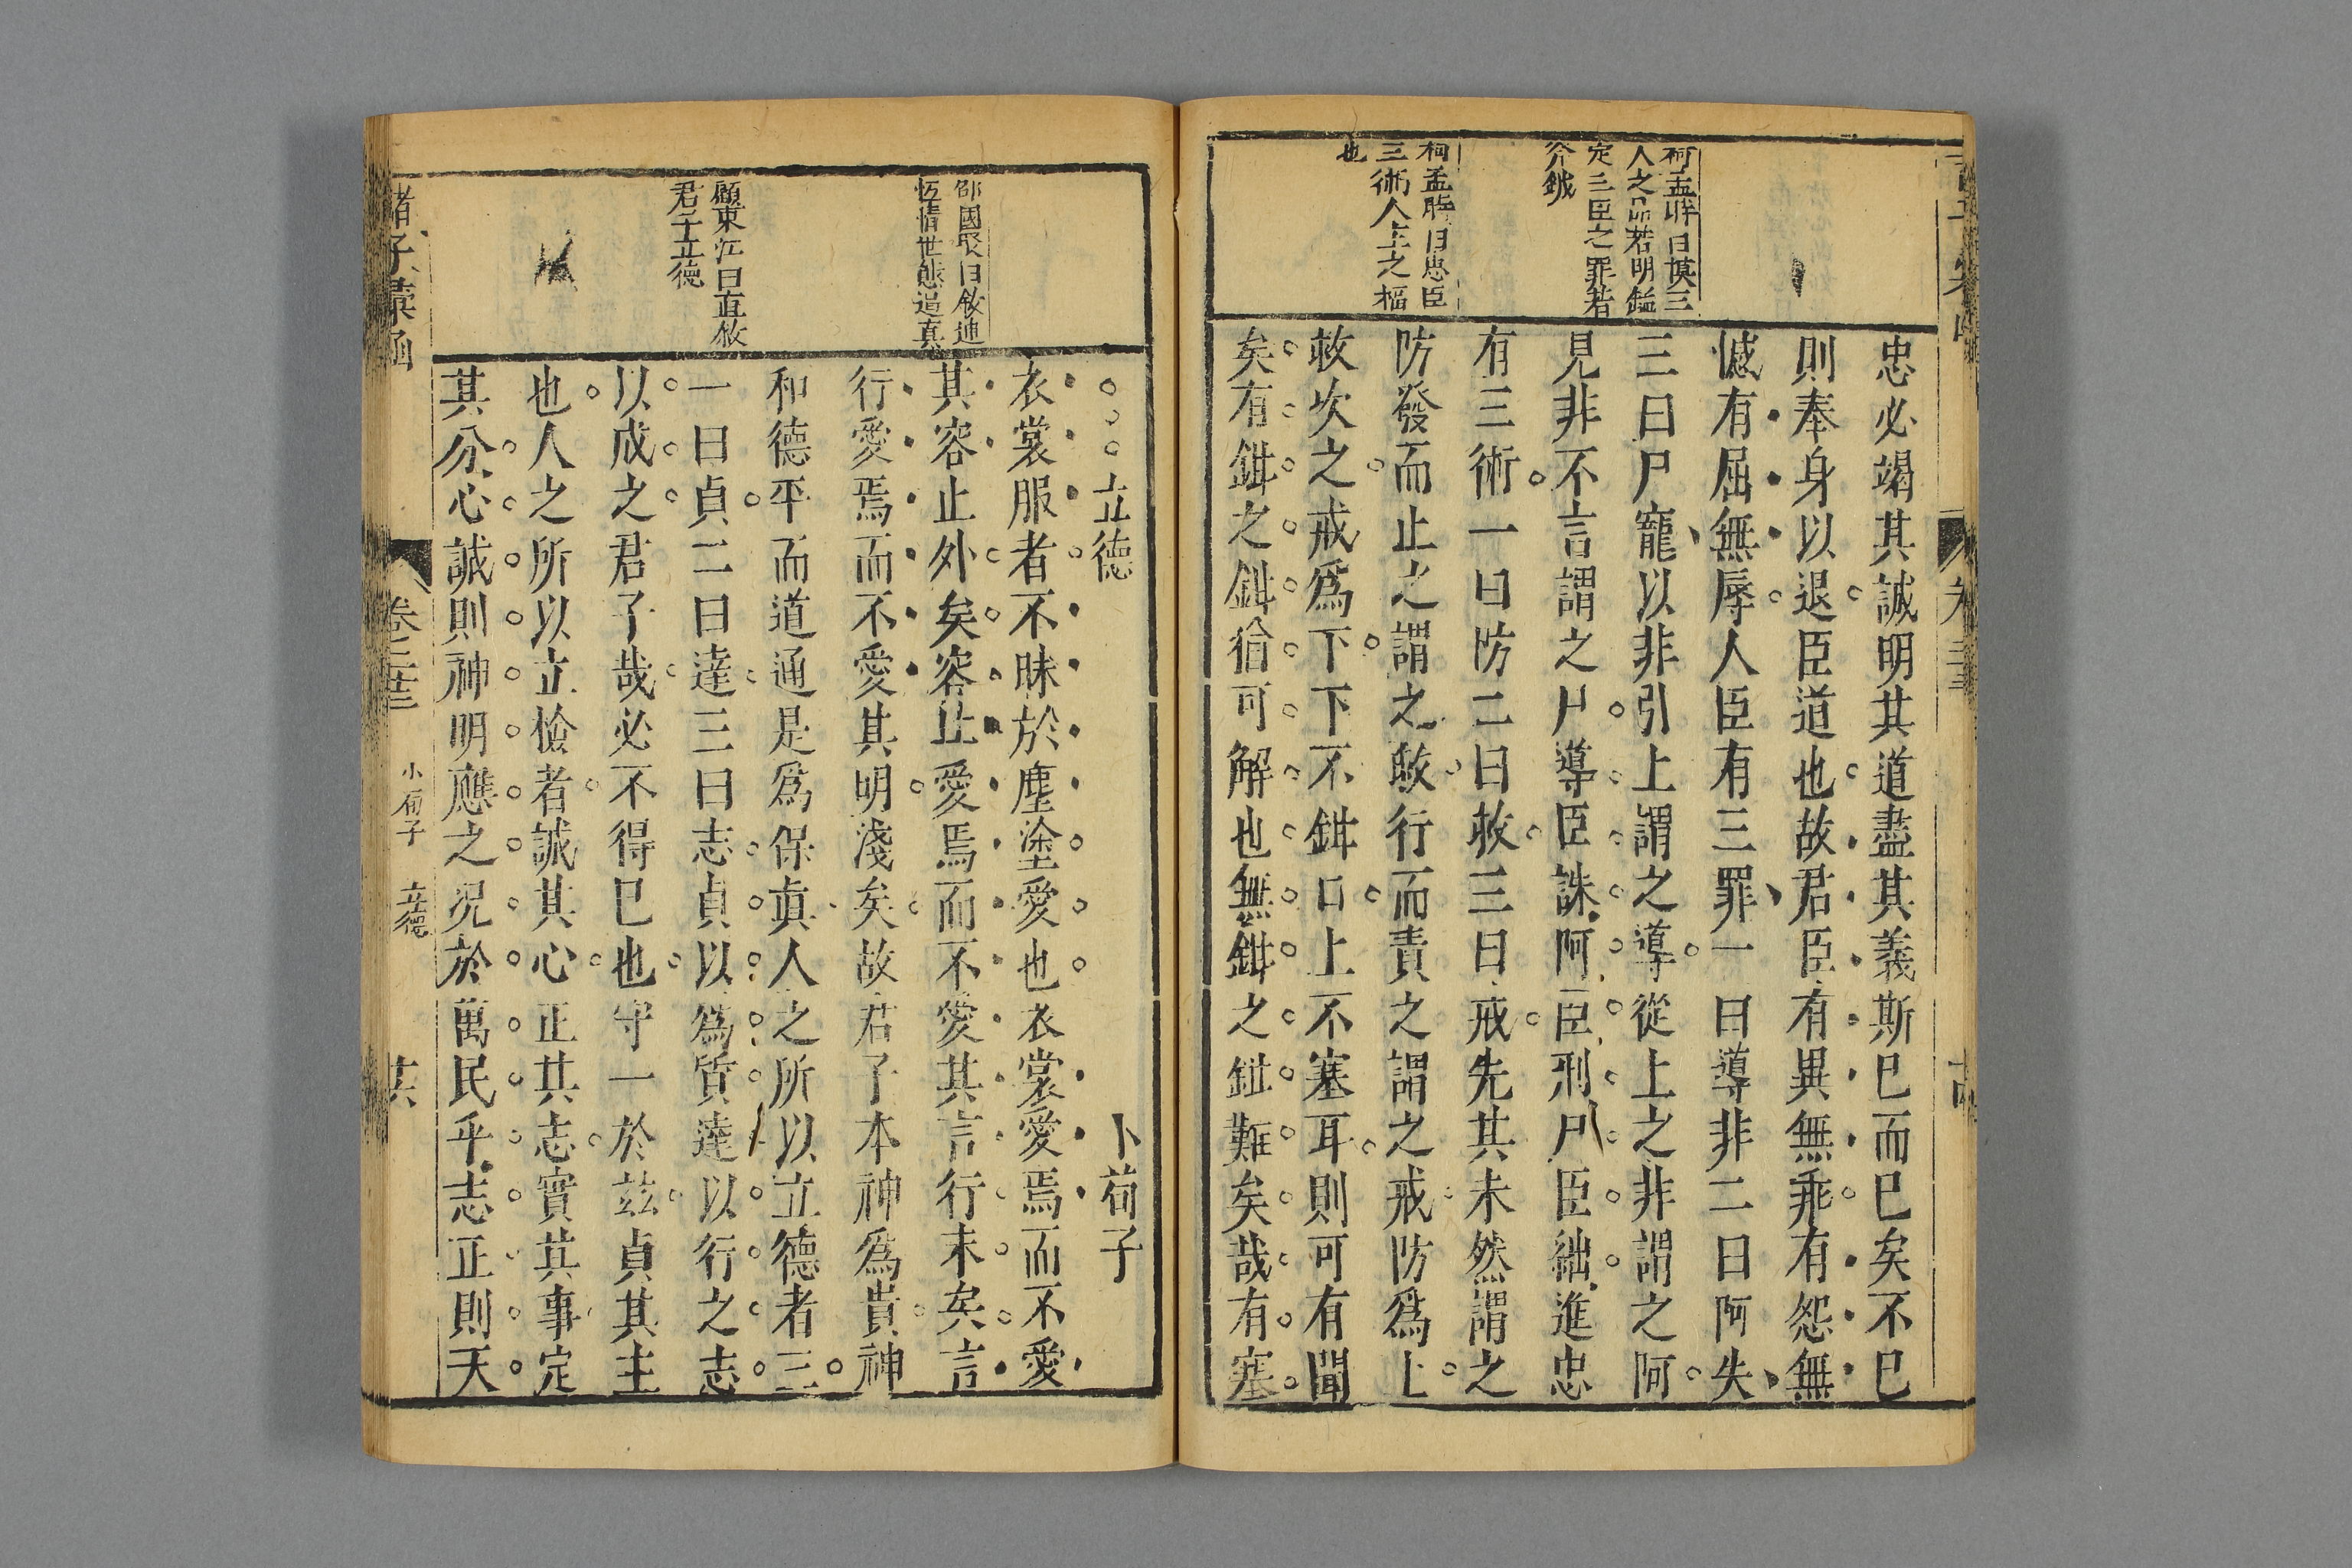 柯孟時曰慎三
人之品若明鑑
定三臣之罪若
斧鉞
柯孟時曰忠臣
三術人主之樞
也
忠必竭其誠明其道盡其義斯巳而巳矣不巳
則奉身以退臣道也故君臣有異無乖有怨無
憾有屈無辱人臣有三罪一曰導非二曰阿失
三曰尸寵以非引上謂之導從上之非謂之阿
見非不言謂之尸導臣誅阿臣刑尸臣絀進忠
有三術一曰防二曰救三曰戒先其未然謂之
防發而止之謂之救行而責之謂之戒防爲上
救次之戒爲下下不鉗口上不塞耳則可有聞
矣有鉗之鉗猶可解也無鉗之鉗難矣哉有塞
立德
卜荀子
邵國聚曰敘廸
恆情世態逼真
顧東江曰直敘
君子立德
衣裳服者不昧於塵塗愛也衣裳愛焉而不愛
其容止外矣容止愛焉而不愛其言行末矣言
行愛焉而不愛其明淺矣故君子本神爲貴神
和德平而道通是爲保眞人之所以立德者三
一曰貞二曰達三曰志貞以爲質達以行之志
以成之君子哉必不得巳也守一於茲貞其主
也人之所以立檢者誠其心正其志實其事定
其分心誠則神明應之況於萬民乎志正則天
諸子彙函
卷二十三
小荀子
立德